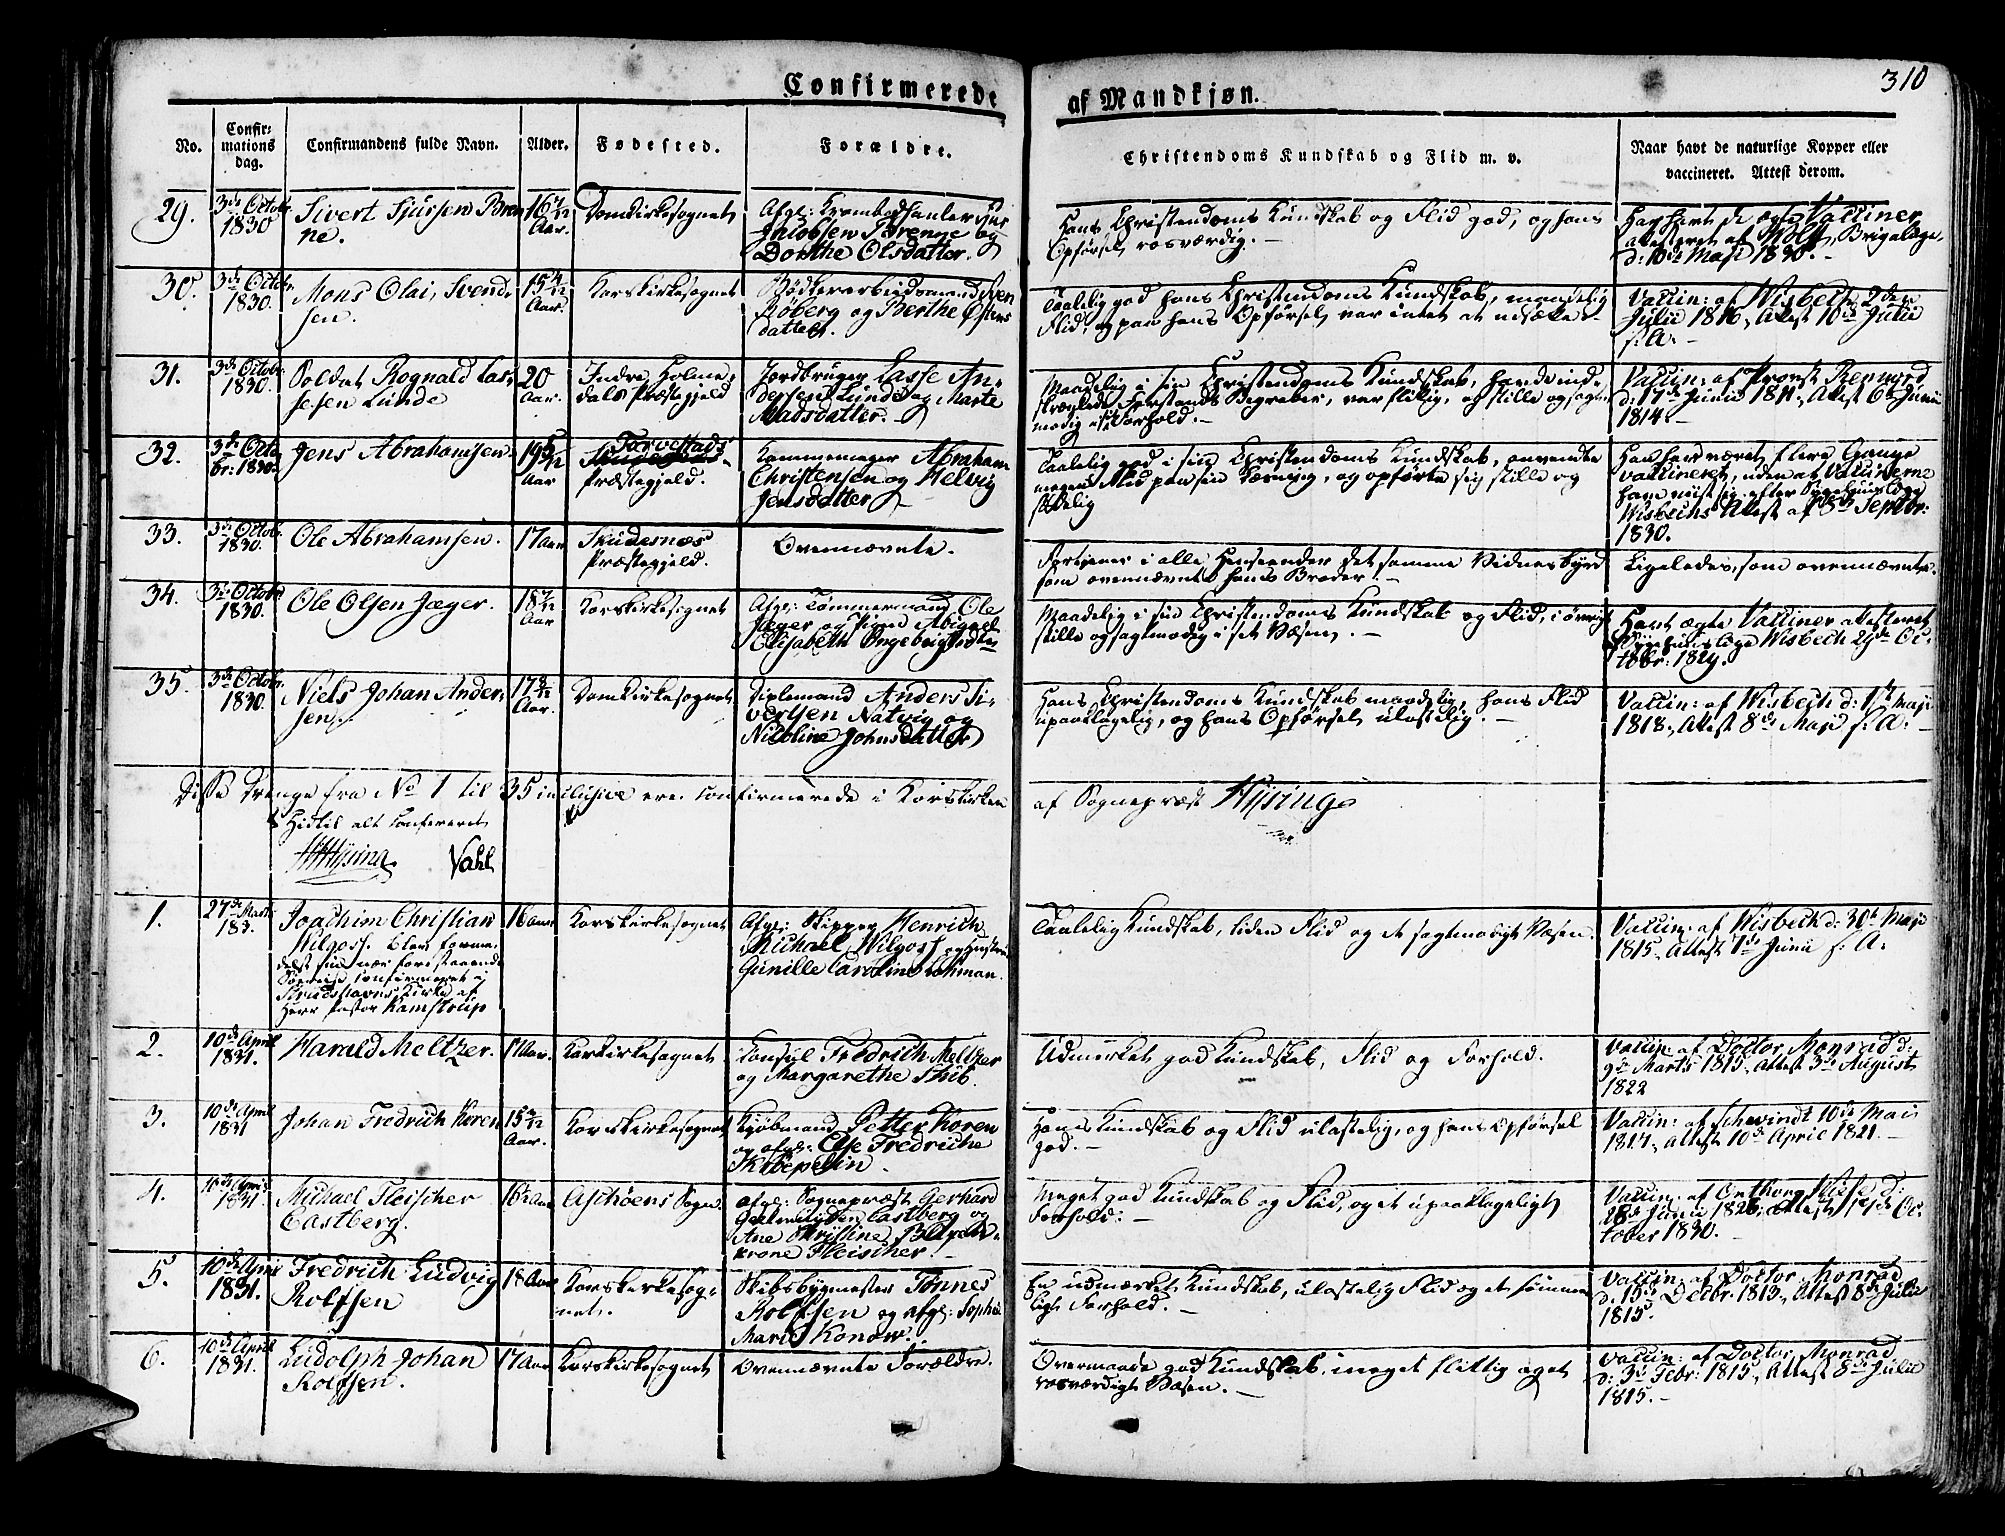 310
Confirmerede af Mandkjøn.
No.
Confir-
mations
dag.
Confirmandens fulde Navn.
Alder.
Fødested.
Forældre.
Christendoms Kundskab og Flid m. v.
Naar havt de naturlige Kopper eller
vaccineret. Attest derom.
29.
3die Octobr.
1830
Sivert Sjursen Bren
ne.
16 7/12
Aar.
Domkirkesognet
Afg: Krambodhandler Siur
Jacobsen Brenne og
Dorthe Olsdatter.
Hans Christendoms Kundskab og Flid god, og hans
Opførsel rosværdig.
Vacciner
attesteret af Brigadelæge
Maji 1830.
30.
3die Octobr.
1830.
Mons Olai Svend-
sen.
15 4/12
Aar.
Korskirkesognet
Bødkerarbeidsmand Sven
Røberg og Berthe
datter.
Taalelig god hans Christendoms Kundskab, maadelig
Flid, og paa hans Opførsel var intet at udsætte.
Vaccin: af Wisbech 2den
Julii 1816, Attest 10de Julii
s: A:
31.
3die Octobr.
1830.
Soldat Rognald Las-
sesen Lunde
20
Aar.
Indre Holme-
dals Præstegjeld
Jordbruger Lasse An-
dersen Lunde og Marte
Madsdatter.
Maadelig i sin Christendoms Kundskab, hans ind-
skrænkede Forstands Begreber, var flittig, og stille og sagt-
modig i sit Forhold.
Vaccin: af Provst Rennord
d: 17de Junii 1811, Attest 6te Junii
1814.
32.
3die Octo
br: 1830.
Jens Abrahamsen.
19 5/12
Aar
Torvestads
Præstegjeld.
Kammemager Abraham
Christensen og Helvig
Jensdatter
Taalelig god i sin Christendoms Kundskab, anvendte
megen Flid paa sin Lærning, og opførte sig stille og
sædelig
Han har været flere Gange
vaccineret, uden at Vaccinerne
have viist sig efter Sygehuuslæge
Wisbechs Attest af 8de Septbr:
1830.
33.
3die Octobr.
1830.
Ole Abrahamsen.
17 Aar
Skudesnæs
Præstegjeld.
Ovennævnte.
Fortjener i alle Henseender det samme Vidnesbyrd
som ovennævnte hans Broder.
Ligeledes, som ovennævnte.
34.
3die Octobr
1830.
Ole Olsen Jæger.
18 7/12
Aar
Korskirkesognet
Afg: Tømmermand Ole
Jæger og Abigael
Elisabeth Ingebrigtsdtr
Maadelig i sin Christendoms Kundskab og Flid, i øvrigt
stille og sagtmodig i sit Væsen.
Havt ægte Vacciner attesteret
Sygehuuslæge Wisbech 29de Oc-
tobr: 1829.
35.
3die Octobr.
1830.
Niels Johan Ander-
sen.
17 8/12
Aar.
Domkirkesognet
Anders Si-
versen Natvig og
Nicoline Johnsdatter
Hans Christendoms Kundskab maadelig, hans Flid
upaaklagelig, og hans Opførsel ulastelig.
Vaccin: af Wisbech d: 1ste Maji
1818, Attest 8de Maji s: A:
Disse Drenge fra No 1 til 35 inclusive ere confirmerede i Korskirken af Sognepræst Hysing
Hidtil alt confereret
Hysing Vahl
1.
27de Marts
183.
Joachim Christian
Wilgos. blev forme-
delst sin nær forestaaende
Søereise confirmeret i
Kirke af
Herr Pastor Kamstrup
16 Aar
Korskirkesognet
Afg: Skipper Henrich
Michael Wilgos og Hustru
Gunille Caroline Lohman.
Taalelig Kundskab, liden Flid og et sagtmodigt Væsen.
Vaccin: af Wisbech d: 30te Maji
1815, Attest 1ste Junii s: A:
2.
10de April
1831.
Harald Meltzer.
17 Aar.
Korskirkesognet
Consul Fredrich Meltzer
og Margarethe Stub.
Udmærket god Kundskab, Flid og Forhold.
Vaccin: af Doctor Monrad d:
9de Marts 1815, Attest 3die August
1822
3.
10de April
1831
Johan Fredrich Koren
15 /12
Aar.
Korskirkesognet
Kjøbmand Petter Koren
og afg: Else Fredriche
Hans Kundskab og Flid ulastelig, og hans Opførsel
god.
Vaccin: af Schwindt 10de Maii
1817, Attest 10de April 1821.
4.
10de April
1831.
Michael Fleischer
Castberg.
16 1/2 Aar
Aschøens Sogn
afg: Sognepræst Gerhard
Castberg og
Ane Christine
krone Fleischer
Meget god Kundskab og Flid, og et upaaklageligt
Forhold:
Vaccin: af d:
28de Junii 1826, Attest Oc-
tober 1830.
5.
10de April
1831.
Fredrich Ludvig
Rolfsen
18 Aar
Korskirkesog-
net.
Skibsbygmester Tønnes
Rolfsen og afg: Sophie
Marie Konow.
En udmærket Kundskab, ulastelig Flid og et sømme-
ligt Forhold.
Vaccin: af Doctor Monrad
d: 10de Decbr. 1813, Attest 8de Julii
1815.
6.
10de April
1831.
Ludolph Johan
Rolfsen.
17 Aar
Korskirkesognet
Ovennævnte Forældre.
Overmaade god Kundskab, meget flittig og et
rosværdigt Væsen.
Vaccin: af Doctor Monrad
d: 3die Febr: 1815, Attest 8de Julii
1815.